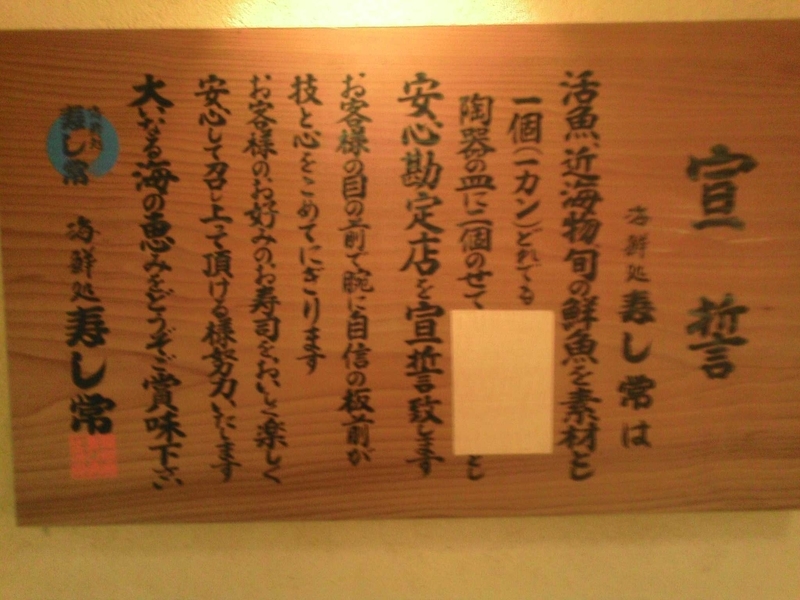 宣誓
海鮮処 寿し常は
活魚、近海物旬の鮮魚を素材とし
一個(一カン)どれでも
陶器の皿に二個のせて
安心勘定店を宣誓致します
お客様の目の前で腕に自信の板前が
技と心をこめてにぎります
お客様のお好みのお寿司をおいしく楽しく
安心して召し上って頂ける様努力いたします
大いなる海の恵みをどうぞご賞味下さい
海鮮処 寿し常
海鮮処
寿し常